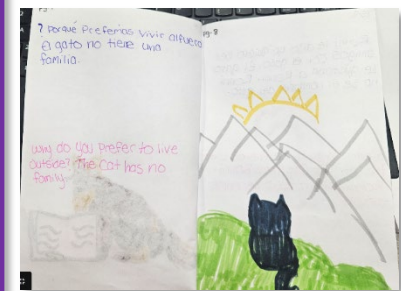 ? Porqué Preferías vivir afuera
El gato no tiene una
familia.
pg. 8
why do you prefer to live
outside? The Cat has no
family